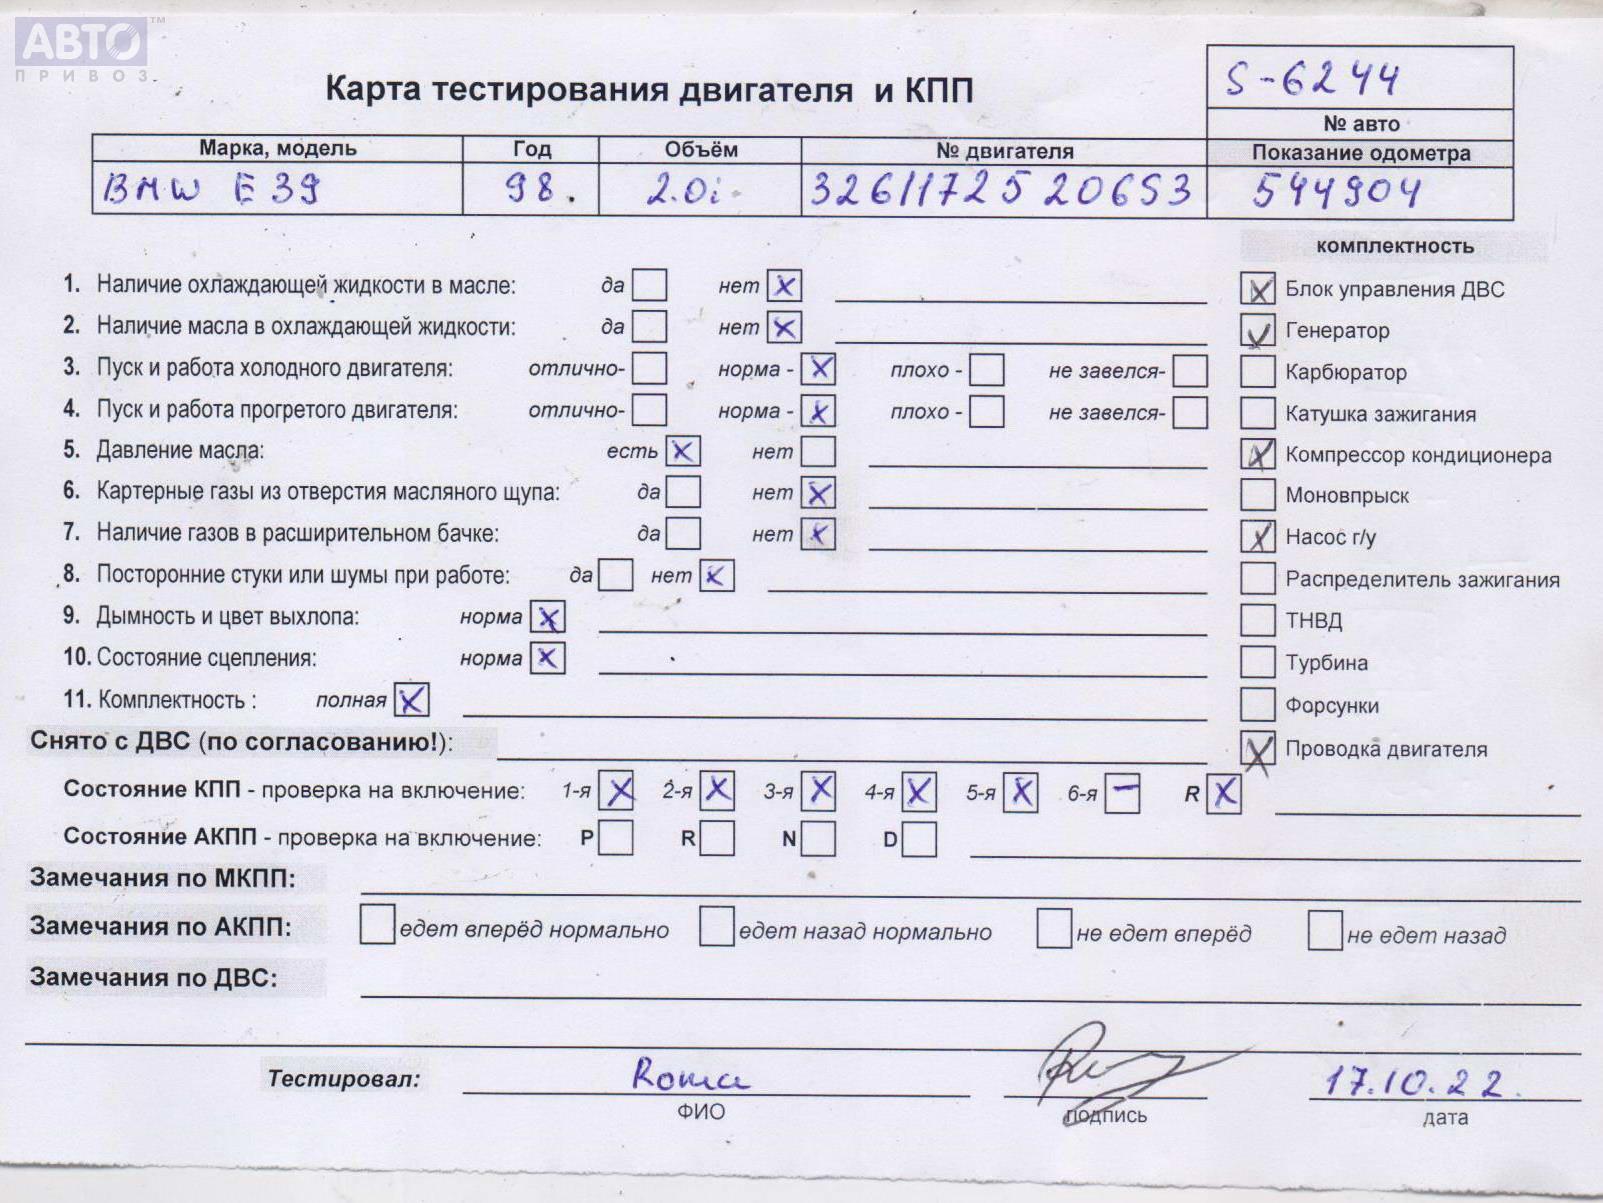 АВТО™
ПРИВОЗ
S-6244
Карта тестирования двигателя и КПП
№ авто
Марка, модель Год Объём № двигателя Показание одометра
BMW E39 98. 2.0i 3261172520653 544904
комплектность
1. Наличие охлаждающей жидкости в масле: да нет X X Блок управления ДВС
2. Наличие масла в охлаждающей жидкости: да нет X V Генератор
3. Пуск и работа холодного двигателя: отлично- норма - X плохо - не завелся- Карбюратор
4. Пуск и работа прогретого двигателя: отлично- норма - X плохо - не завелся- Катушка зажигания
5. Давление масла: есть X нет X Компрессор кондиционера
6. Картерные газы из отверстия масляного щупа: да нет X Моновпрыск
7. Наличие газов в расширительном бачке: да нет X X Насос г/у
8. Посторонние стуки или шумы при работе: да нет X Распределитель зажигания
9. Дымность и цвет выхлопа: норма X ТНВД
10. Состояние сцепления: норма X Турбина
11. Комплектность : полная X Форсунки
Снято с ДВС (по согласованию!): X Проводка двигателя
Состояние КПП - проверка на включение: 1-я X 2-я X 3-я X 4-я X 5-я X 6-я – R X
Состояние АКПП - проверка на включение: P R N D
Замечания по МКПП:
Замечания по АКПП: едет вперёд нормально едет назад нормально не едет вперёд не едет назад
Замечания по ДВС:
Тестировал: Roma 17.10.22.
ФИО подпись дата